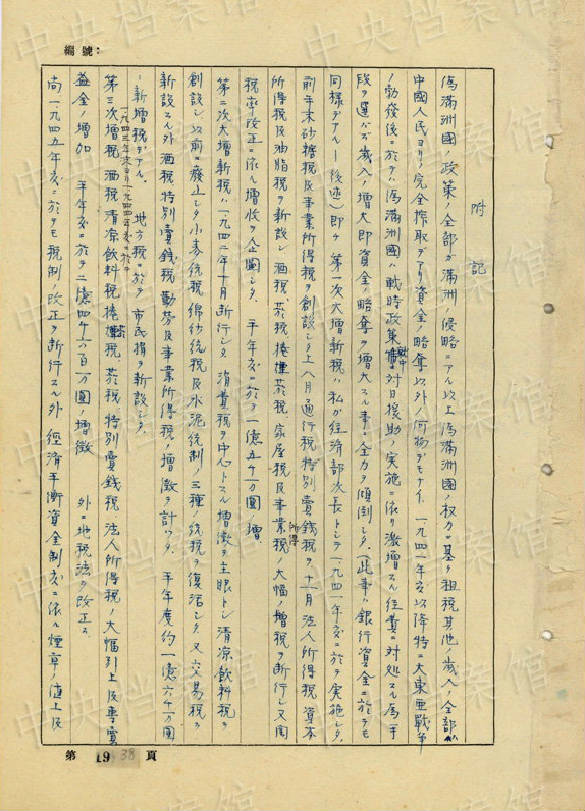 編號：
附記
偽滿洲國ノ政策ノ全部ガ滿洲ノ侵略ニアル以上偽滿洲國ノ权力ニ基ク租税其他ノ歳入ノ全部ハ
中國人民ヨリノ完全搾取デアリ資金ノ略奪以外ノ何物デモナイ、一九四一年度以降特ニ大東亜戰争
ノ勃發後ニ於テハ偽滿洲國ハ戰時政策就中対日援助ノ実施ニ依リ激增スル経費ニ対処スル為手
段ヲ選バズ歳入ノ増大即資金ノ略奪ノ增大スル事ニ全力ヲ傾倒シタ、（此事ハ銀行資金ニ於テモ
同様デアル—後述）即チ第一次大增新税ハ私ガ経済部次長トシテ一九四一年度ニ於テ実施シタ、
前年末砂糖税及事業所得税ヲ創設シタ上八月通行税特別賣銭税ヲ十一月法人所得税資本
所得税及油脂税ヲ新設シ 酒税、菸税、捲菸税、家屋税及事業所得税ノ大幅ノ增税ヲ断行シ又関
税率改正ニ依ル増收ヲ企圖シタ、 平年度ニ於テ一億五千万圓增、
第二次大增新税ハ一九四二年十月断行シタ 消費税ヲ中心トスル増徴ヲ主眼トシ 清凉飲料税ヲ
創設シ以前ニ廢止シタ小麦統税綿紗統税及水泥統制ノ三種ノ統税ヲ復活シタ 又交易税ヲ
新設スル外酒税特別賣銭税勤労及事業所得税ノ増徴ヲ計ツタ、 平年度約一億六千万圓
ノ新增税デアル、 地方税ニ於テ市民捐ヲ新設シタ、
第三次增税ハ一九四三年末ヨリ一九四四年度ニ於テ 酒税清凉飲料税捲菸税、菸税特別賣銭税法人所得税ノ大幅引上及專賣
益金ノ増加 平年度ニ於テ二億四千六百万圓ノ增徴 外ニ地税法ヲ改正ス
尚一九四五年度ニ於テモ税制ノ改正ヲ断行スル外経済平衡資金制度ニ依ル煙草ノ値上及
第1938頁
中央档案馆